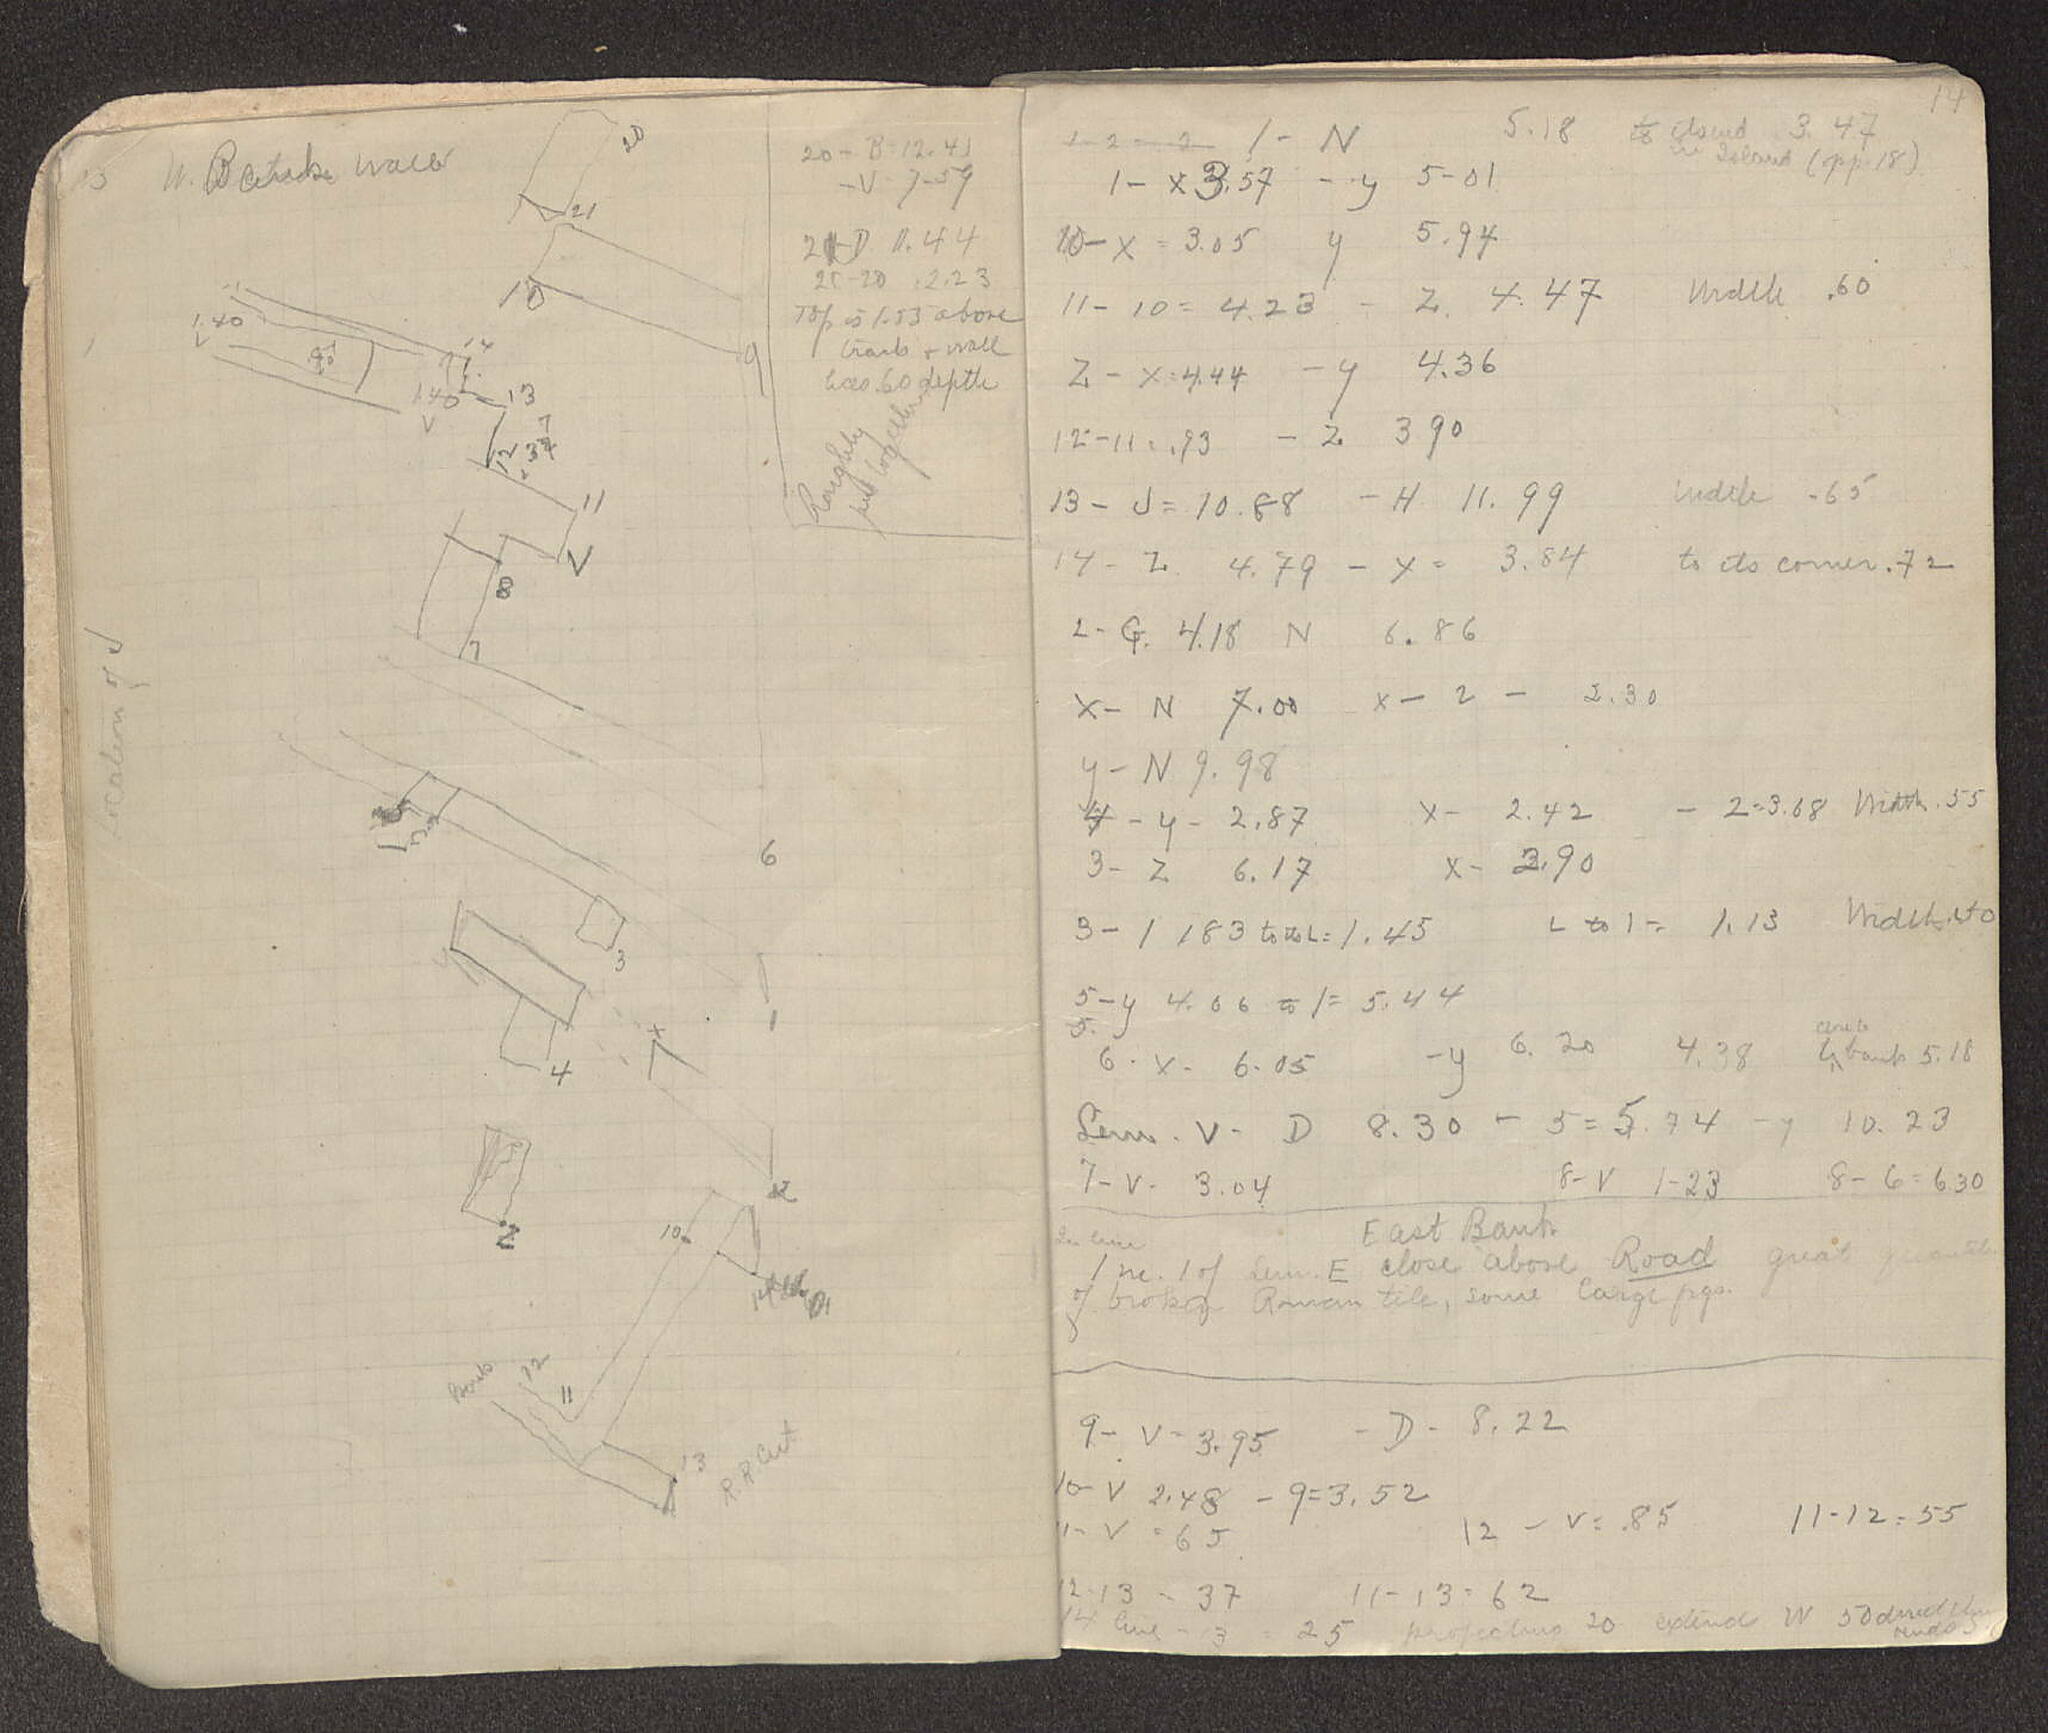 13
W. B
20
21
10
9
1.40
V
14
1.40
V
13
12
11
V
8
7
Location of J
6
3
4
1
X
4
Z
2
10
12
11
13
R.R. Cut
20 - B = 12.41
- V = 7.59
21 D 11.44
21-20 2.23
Top is 1.53 above
tracks + wall
has .60 depth
Roughly
put together
14
1 - N 5.18 to island 3.47
in Island (opp. 18)
1 - X 3.57 - y 5-01
10 - X = 3.05 y 5.94
11 - 10 = 4.23 - Z. 4.47 Width .60
Z - X = 4.44 - y 4.36
12 - 11 = .93 - Z 3 90
13 - J = 10.88 - H 11.99 width .65
14 - Z 4.79 - X = 3.84 to its corner .72
2 - G. 4.18 N 6.86
X - N 7.00 X - 2 - 2.30
y - N 9.98
4 - y - 2.87 X - 2.42 - Z = 3.68 Width .55
3 - Z 6.17 X - 3.90
3 - 1 1 83 to L = 1.45 L to 1 = 1.13 Width
5 - y 4.06 to 1 = 5.44
6 - X - 6.05 - y 6.20 4.38 bank 5.18
V - D 8.30 - 5 = 5.74 - y 10.23
7 - V - 3.04 8 - V 1-23 8 - 6 = 6.30
East Bank
E close above Road great
of broken Roman tile, some large pgs.
9 - V = 3.95 - D - 8.22
10 - V 2.48 - 9 = 3.52
11 - V = 65 12 - V = .85 11-12 = 55
12-13 - 37 11-13 = 62
14 line - 13 = 25 projecting 20 extend W 50